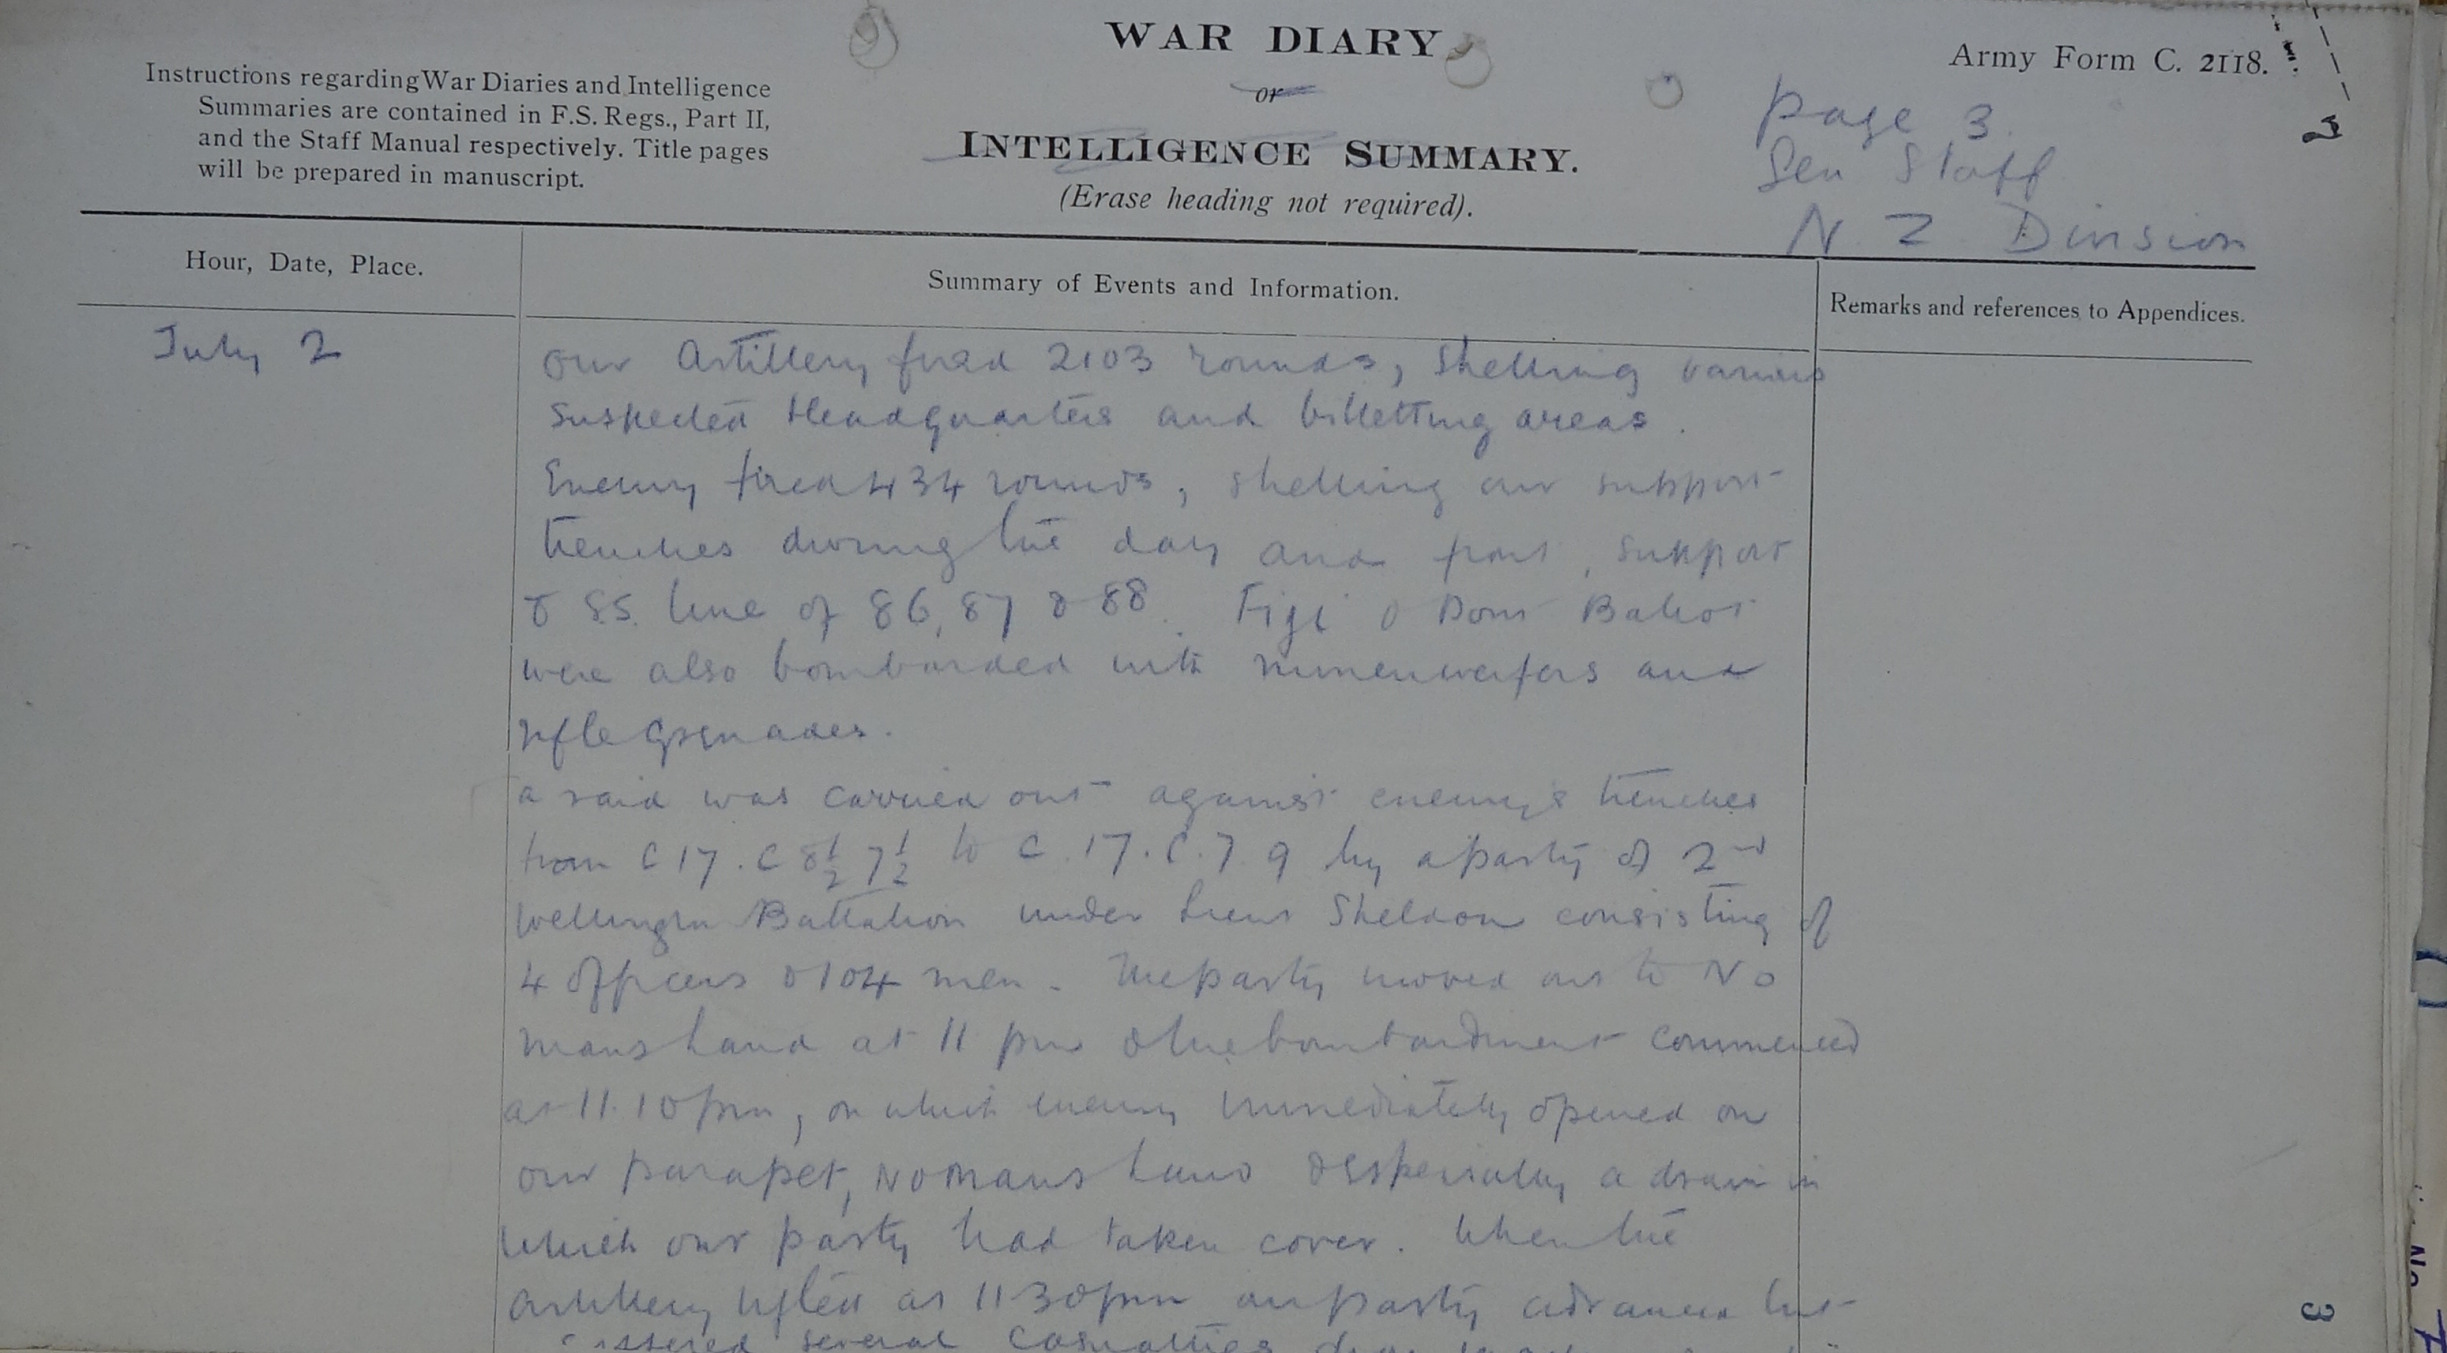 WAR DIARY
or
INTELLIGENCE SUMMARY.
(Erase heading not required).
Instructions regarding War Diaries and Intelligence
Summaries are contained in F.S. Regs., Part II,
and the Staff Manual respectively. Title pages
will be prepared in manuscript.
Army Form C. 2118.
page 3.
Gen Staff
N Z Division
Hour, Date, Place.
Summary of Events and Information.
Remarks and references to Appendices.
July 2
Our Artillery fired 2103 rounds, shelling various
suspected Headquarters and billetting areas.
Enemy fired 434 rounds, shelling our support
trenches during the day and front, support
& S.S. line of 86, 87 & 88.
were also bombarded with minenwerfers and
rifle grenades.
a raid was carried out against enemy's trenches
from C 17. C 8½ 7½ to C. 17. C. 7 9 by a party of 2nd
Wellington Battalion under Lieut Sheldon consisting of
4 officers & 104 men. The party moved out to No
mans Land at 11 pm & the bombardment commenced
at 11.10 pm, on which enemy immediately opened on
our parapet, No Mans Land & especially a drain in
which our party had taken cover. When the
artillery lifted at 11.30 pm our party advanced but
several casualties
3